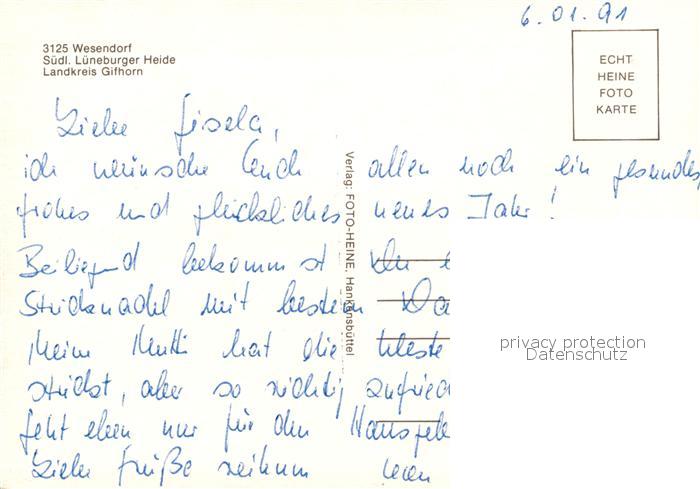 6.01.91
3125 Wesendorf
Südl. Lüneburger Heide
Landkreis Gifhorn
ECHT
HEINE
FOTO
KARTE
Liebe Gisela,
ich wünsche Euch allen noch ein gesundes
frohes und glückliches neues Jahr!
Beiliegend bekommst Du
Stricknadel mit bestem Da
Meine Mutti hat die Weste
strickt, aber so richtig zufried
geht eben nur für den Hausge
Liebe Grüße reihum
Verlag: FOTO-HEINE, Hankensbüttel
privacy protection
Datenschutz